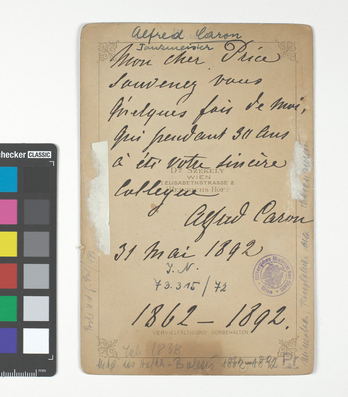 Alfred Caron
Tanzmeister
Mon cher Price
Souvenez vous
Quelques fois de moi,
Qui pendant 30 ans
à été votre sincère
Collegue
Dr. SZEKELY
WIEN
ELISABETHSTRASSE 2
Alfred Caron
31 Mai 1892
I. N.
73.315/72
1862 — 1892.
VERVIELFÄLTIGUNG VORBEHALTEN
1862-1892
checker CLASSIC